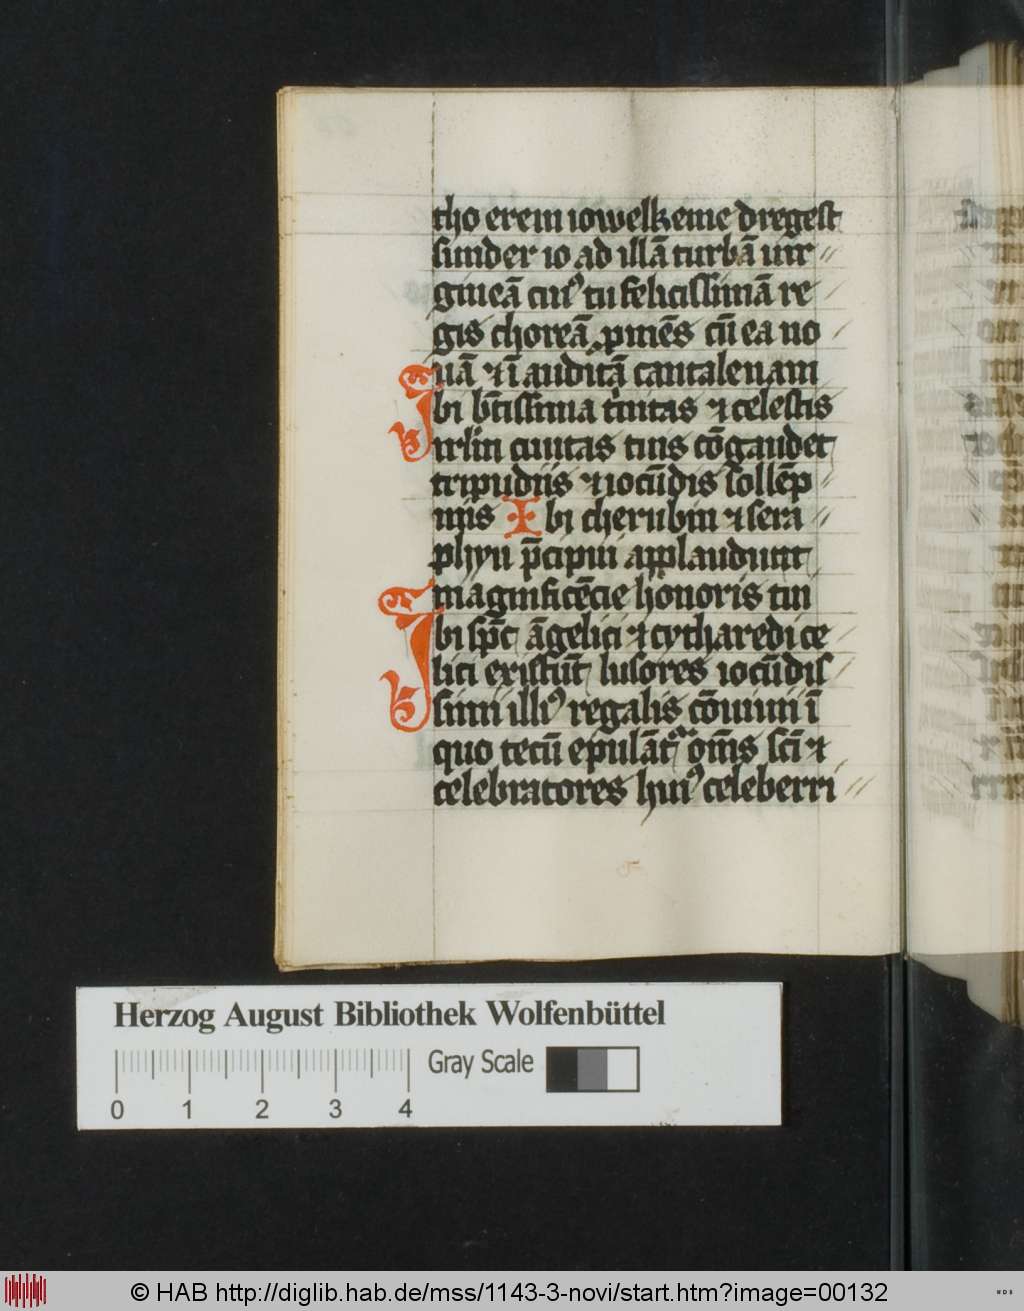 tho erem iowelkeme dregest
sunder io ad illā turbā uir
gineā cui⁹ tu felicissimā re
gis choreā ꝓmiēs cū ea no
uā ⁊ ī auditā cantalenam
Ibi bt̄issima tīnitas ⁊ celestis
irl̄in ciuitas tuis cōgaudet
tripudiis ⁊ iocūdis sollēp
niis Ibi cherubin ⁊ sera
phyn p̄cipui applaudunt
magnificēcie honoris tui
Ibi sp̄c āgelici ⁊ cytharedi ce
lici existūt lusores iocūdis
simi illi⁹ regalis cōuiuii ī
quo tecū epulāt᷑ om̄s sc̄i ⁊
celebratores hui⁹ celeberri
Herzog August Bibliothek Wolfenbüttel
Gray Scale
0 1 2 3 4
© HAB http://diglib.hab.de/mss/1143-3-novi/start.htm?image=00132